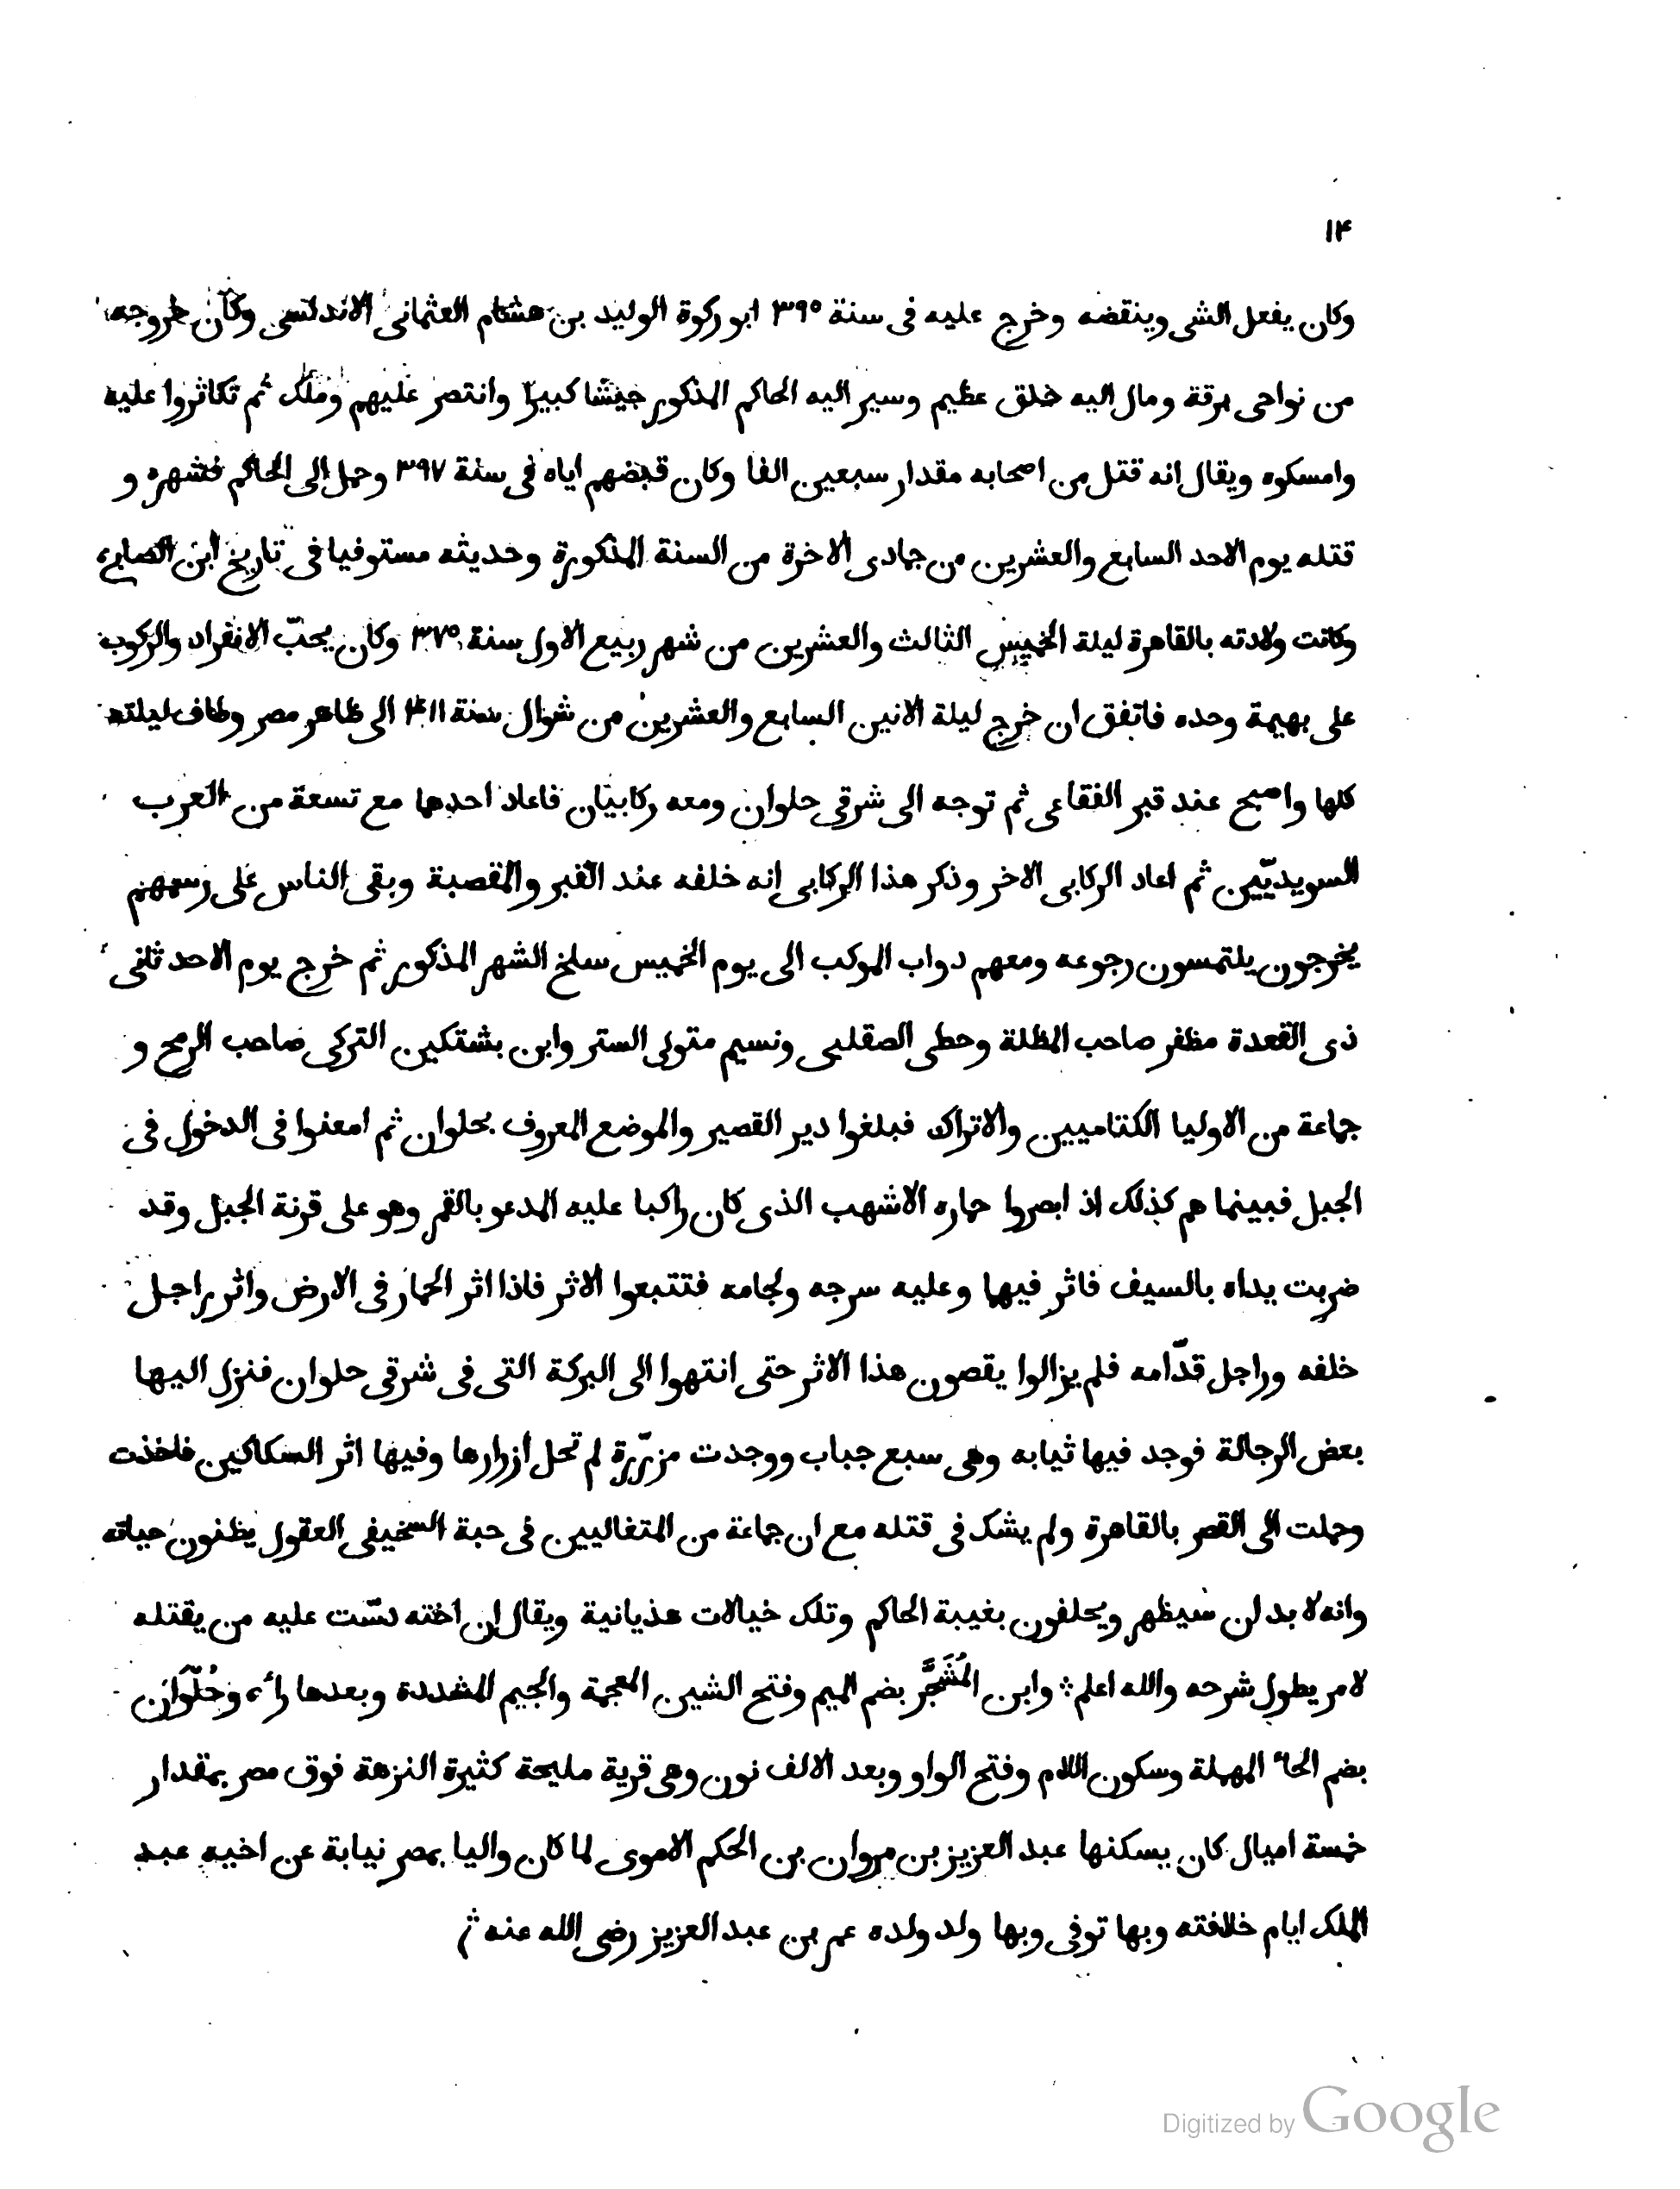 ١٤
وكان يفعل الشى وينقضه وخرج عليه فى سنة ٣٩٥ ابو ركوة الوليد بن هشام العثمانى الاندلسى وكان خروجه
من نواحى برقة ومال اليه خلق عظيم وسير اليه الحاكم المذكور جيشا كبيرا وانتصر عليهم وملك ثم تكاثروا عليه
وامسكوه ويقال انه قتل من اصحابه مقدار سبعين الفا وكان قبضهم اياه فى سنة ٣٩٧ وحمل الى الحاكم فشهره و
قتله يوم الاحد السابع والعشرين من جمادى الاخرة من السنة المذكورة وحديثه مستوفيا فى تاريخ ابن الصابى
وكانت ولادته بالقاهرة ليلة الخميس الثالث والعشرين من شهر ربيع الاول سنة ٣٧٥ وكان يحبّ الانفراد والركوب
على بهيمة وحده فاتفق ان خرج ليلة الاثنين السابع والعشرين من شوال سنة ٤١١ الى ظاهر مصر وطاف ليلته
كلها واصبح عند قبر الفقاعى ثم توجه الى شرقى حلوان ومعه ركابيان فاعاد احدهما مع تسعة من العرب
السويديّين ثم اعاد الركابى الاخر وذكر هذا الركابى انه خلفه عند القبر والمقصبة وبقى الناس على رسمهم
يخرجون يلتمسون رجوعه ومعهم دواب الموكب الى يوم الخميس سلخ الشهر المذكور ثم خرج يوم الاحد ثانى
ذى القعدة مظفر صاحب المظلة وحطى الصقلبى ونسيم متولى الستر وابن بشتكين التركى صاحب الرمح و
جماعة من الاوليا الكتاميين والاتراك فبلغوا دير القصير والموضع المعروف بحلوان ثم امعنوا فى الدخول فى
الجبل فبينما هم كذلك اذ ابصروا حماره الاشهب الذى كان راكبا عليه المدعو بالقمر وهو على قرنة الجبل وقد
ضربت يداه بالسيف فاثر فيهما وعليه سرجه ولجامه فتتبعوا الاثر فاذا اثر الحمار فى الارض واثر راجل
خلفه وراجل قدّامه فلم يزالوا يقصون هذا الاثر حتى انتهوا الى البركة التى فى شرقى حلوان فنزل اليها
بعض الرجالة فوجد فيها ثيابه وهى سبع جباب ووجدت مزرّرة لم تحل ازرارها وفيها اثر السكاكين فاخذت
وحملت الى القصر بالقاهرة ولم يشك فى قتله مع ان جماعة من المتغاليين فى حبة السخيفى العقول يظنون حياته
وانه لا بد ان سيظهر ويحلفون بغيبة الحاكم وتلك خيالات هذيانية ويقال ان اخته دسّت عليه من يقتله
لامر يطول شرحه والله اعلم ؞ وابن المُشَجَّر بضم الميم وفتح الشين المعجمة والجيم المشددة وبعدها راء وحُلْوَان
بضم الحاء المهملة وسكون اللام وفتح الواو وبعد الالف نون وهى قرية مليحة كثيرة النزهة فوق مصر بمقدار
خمسة اميال كان يسكنها عبد العزيز بن مروان بن الحكم الاموى لما كان واليا بمصر نيابة عن اخيه عبد
الملك ايام خلافته وبها توفى وبها ولد ولده عمر بن عبد العزيز رضى الله عنه
Digitized by Google